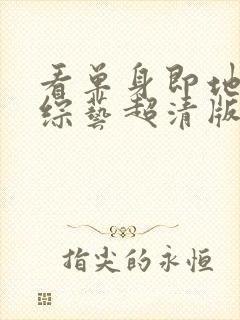 看单身即地
综艺超清版
指尖的永恒